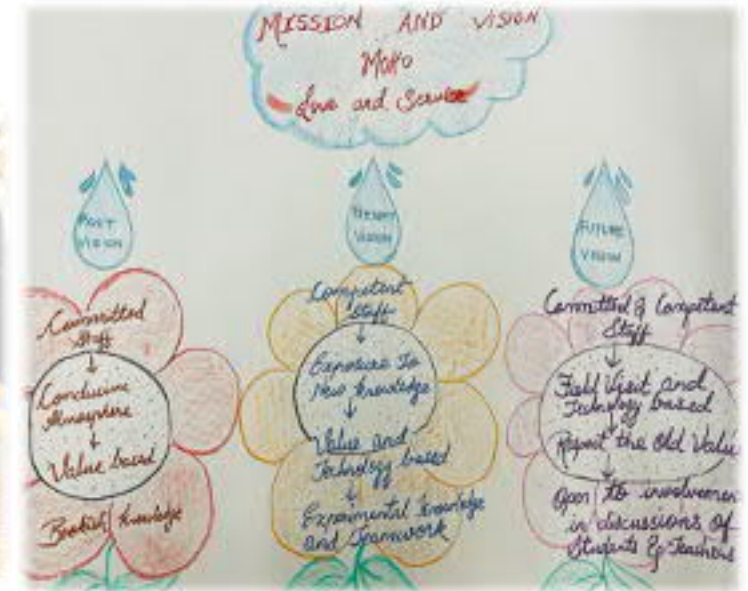 MISSION AND VISION
Motto
Love and Service
PAST
VISION
PRESENT
VISION
FUTURE
VISION
Committed
Staff
Conducive
Atmosphere
Value based
Bookish knowledge
Competent
Staff
Exposure To
New knowledge
Value and
Technology based
Experimental knowledge
and Teamwork
Committed & Competent
Staff
Field Visit and
Technology based
Respect the Old Value
Open to involvemen
in discussions of
Students & Teachers